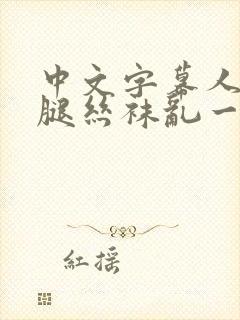 中文字幕人
腿丝袜亂一
紅摇